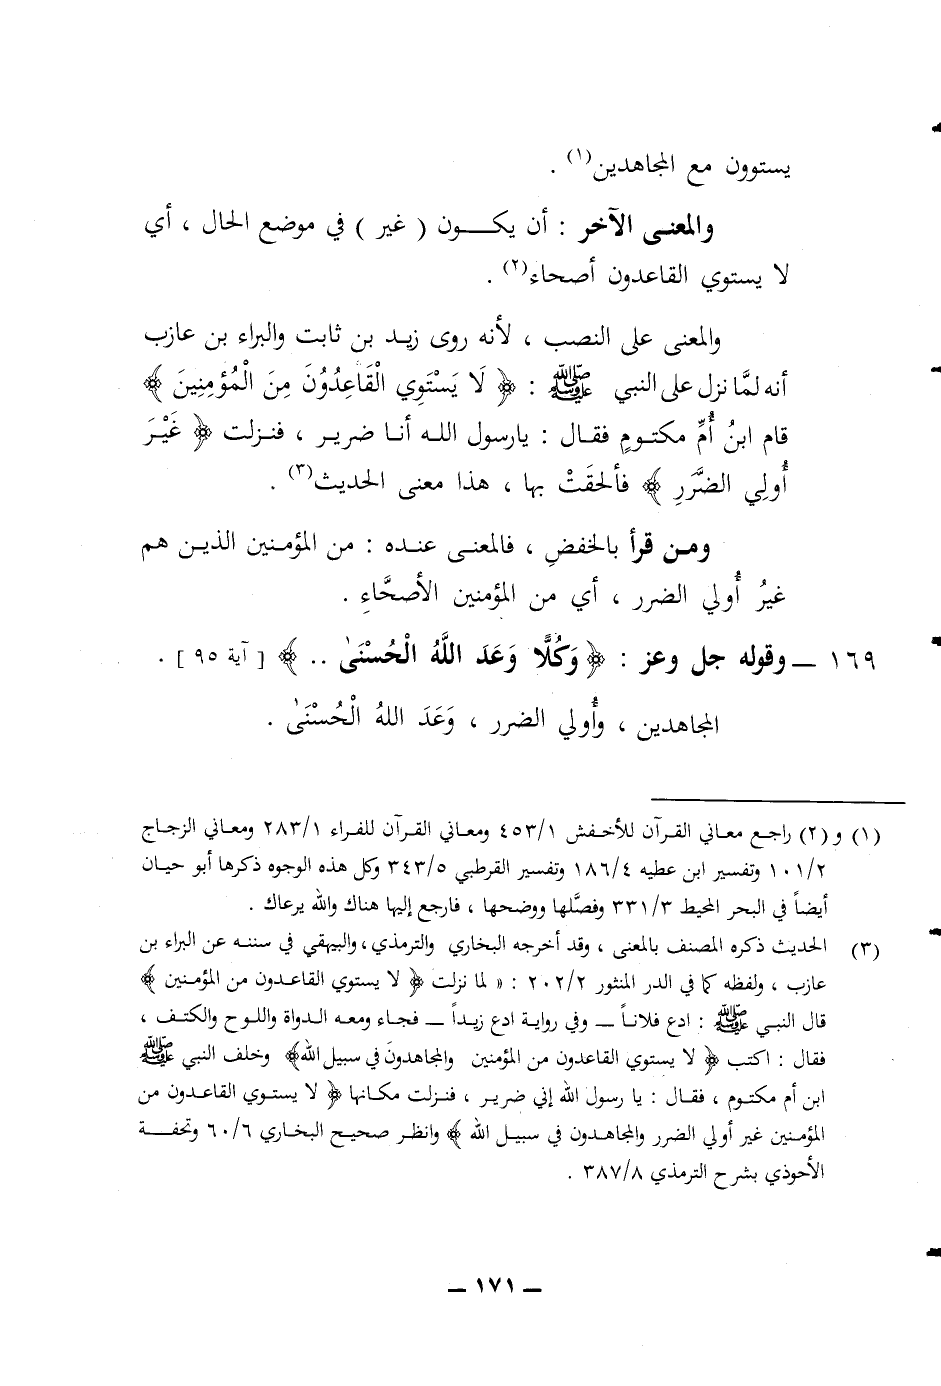 يستوون مع المجاهدين(١) .
والمعنى الآخر : أن يكون ( غير ) في موضع الحال ، أي
لا يستوي القاعدون أصحاء(٢) .
والمعنى على النصب ، لأنه روى زيد بن ثابت والبراء بن عازب
أنه لمَّا نزل على النبي ﷺ : ﴿ لَا يَسْتَوِي الْقَاعِدُونَ مِنَ الْمُؤمِنِينَ ﴾
قام ابنُ أُمِّ مكتومٍ فقال : يارسول الله أنا ضرير ، فنزلت ﴿ غَيْرَ
أُولِي الضَّرَرِ ﴾ فألحقَتْ بها ، هذا معنى الحديث(٣) .
ومن قرأ بالخفضِ ، فالمعنى عنده : من المؤمنين الذين هم
غيرُ أُولي الضرر ، أي من المؤمنين الأصحَّاءِ .
١٦٩ ــ وقوله جل وعز : ﴿ وَكُلًّا وَعَدَ اللَّهُ الْحُسْنَىٰ .. ﴾ [ آية ٩٥ ] .
المجاهدين ، وأُولي الضرر ، وَعَدَ اللهُ الْحُسْنَىٰ .
(١) و (٢) راجع معاني القرآن للأخفش ٤٥٣/١ ومعاني القرآن للفراء ٢٨٣/١ ومعاني الزجاج
١٠١/٢ وتفسير ابن عطيه ١٨٦/٤ وتفسير القرطبي ٣٤٣/٥ وكل هذه الوجوه ذكرها أبو حيان
أيضاً في البحر المحيط ٣٣١/٣ وفصَّلها ووضحها ، فارجع إليها هناك والله يرعاك .
(٣) الحديث ذكره المصنف بالمعنى ، وقد أخرجه البخاري والترمذي ، والبيهقي في سننه عن البراء بن
عازب ، ولفظه كما في الدر المنثور ٢٠٢/٢ : « لما نزلت ﴿ لا يستوي القاعدون من المؤمنين ﴾
قال النبي ﷺ : ادع فلاناً ــ وفي رواية ادع زيداً ــ فجاء ومعه الدواة واللوح والكتف ،
فقال : اكتب ﴿ لا يستوي القاعدون من المؤمنين والمجاهدونَ في سبيل الله﴾ وخلف النبي ﷺ
ابن أم مكتوم ، فقال : يا رسول الله إني ضرير ، فنزلت مكانها ﴿ لا يستوي القاعدون من
المؤمنين غير أولي الضرر والمجاهدون في سبيل الله ﴾ وانظر صحيح البخاري ٦٠/٦ وتحفة
الأحوذي بشرح الترمذي ٣٨٧/٨ .
ــ ١٧١ ــ